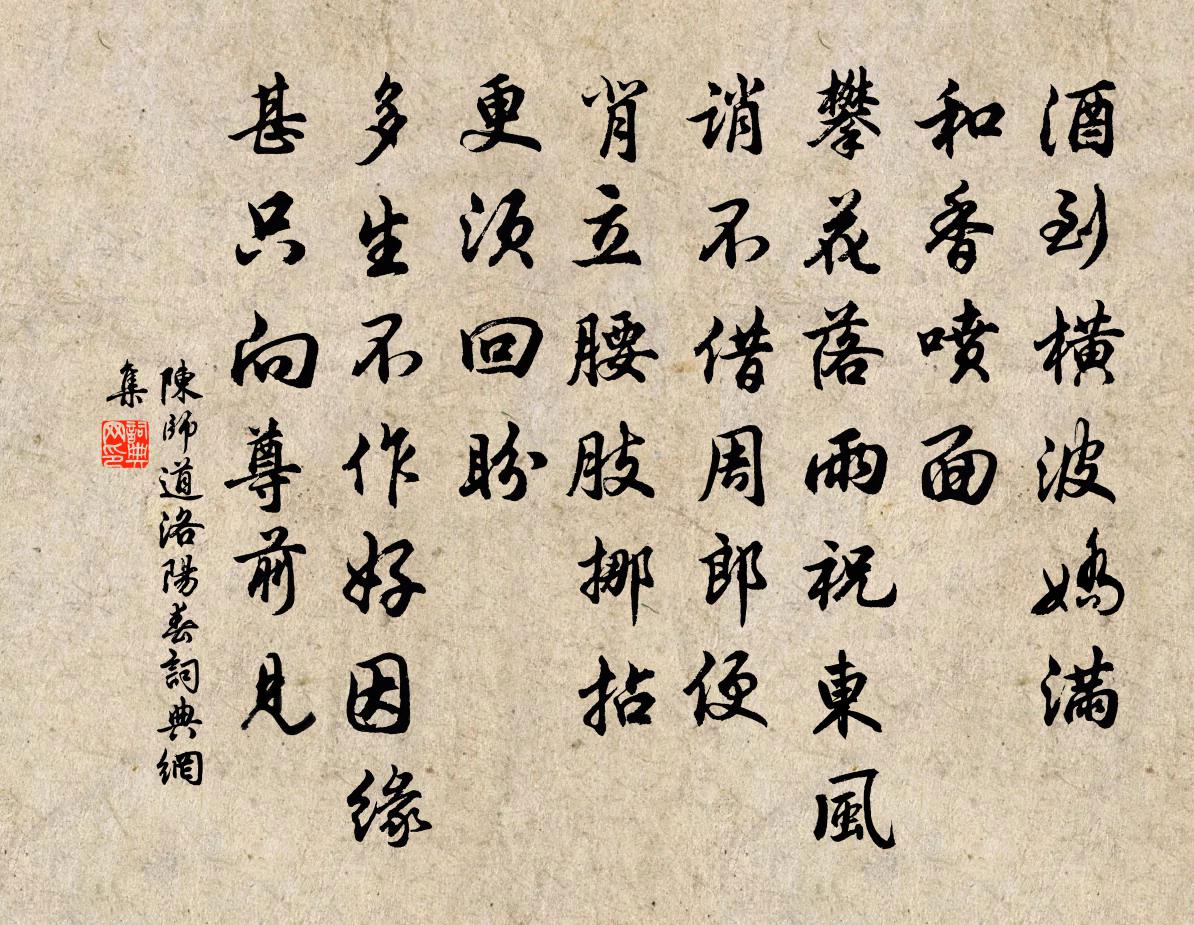 酒到橫波嬌滿
和香噴面
攀花落雨祝東風
誚不借周郎便
背立腰肢挪拈
更須回盼
多生不作好因緣
甚只向尊前見
陳師道洛陽春詞典網
集
詞典
网印